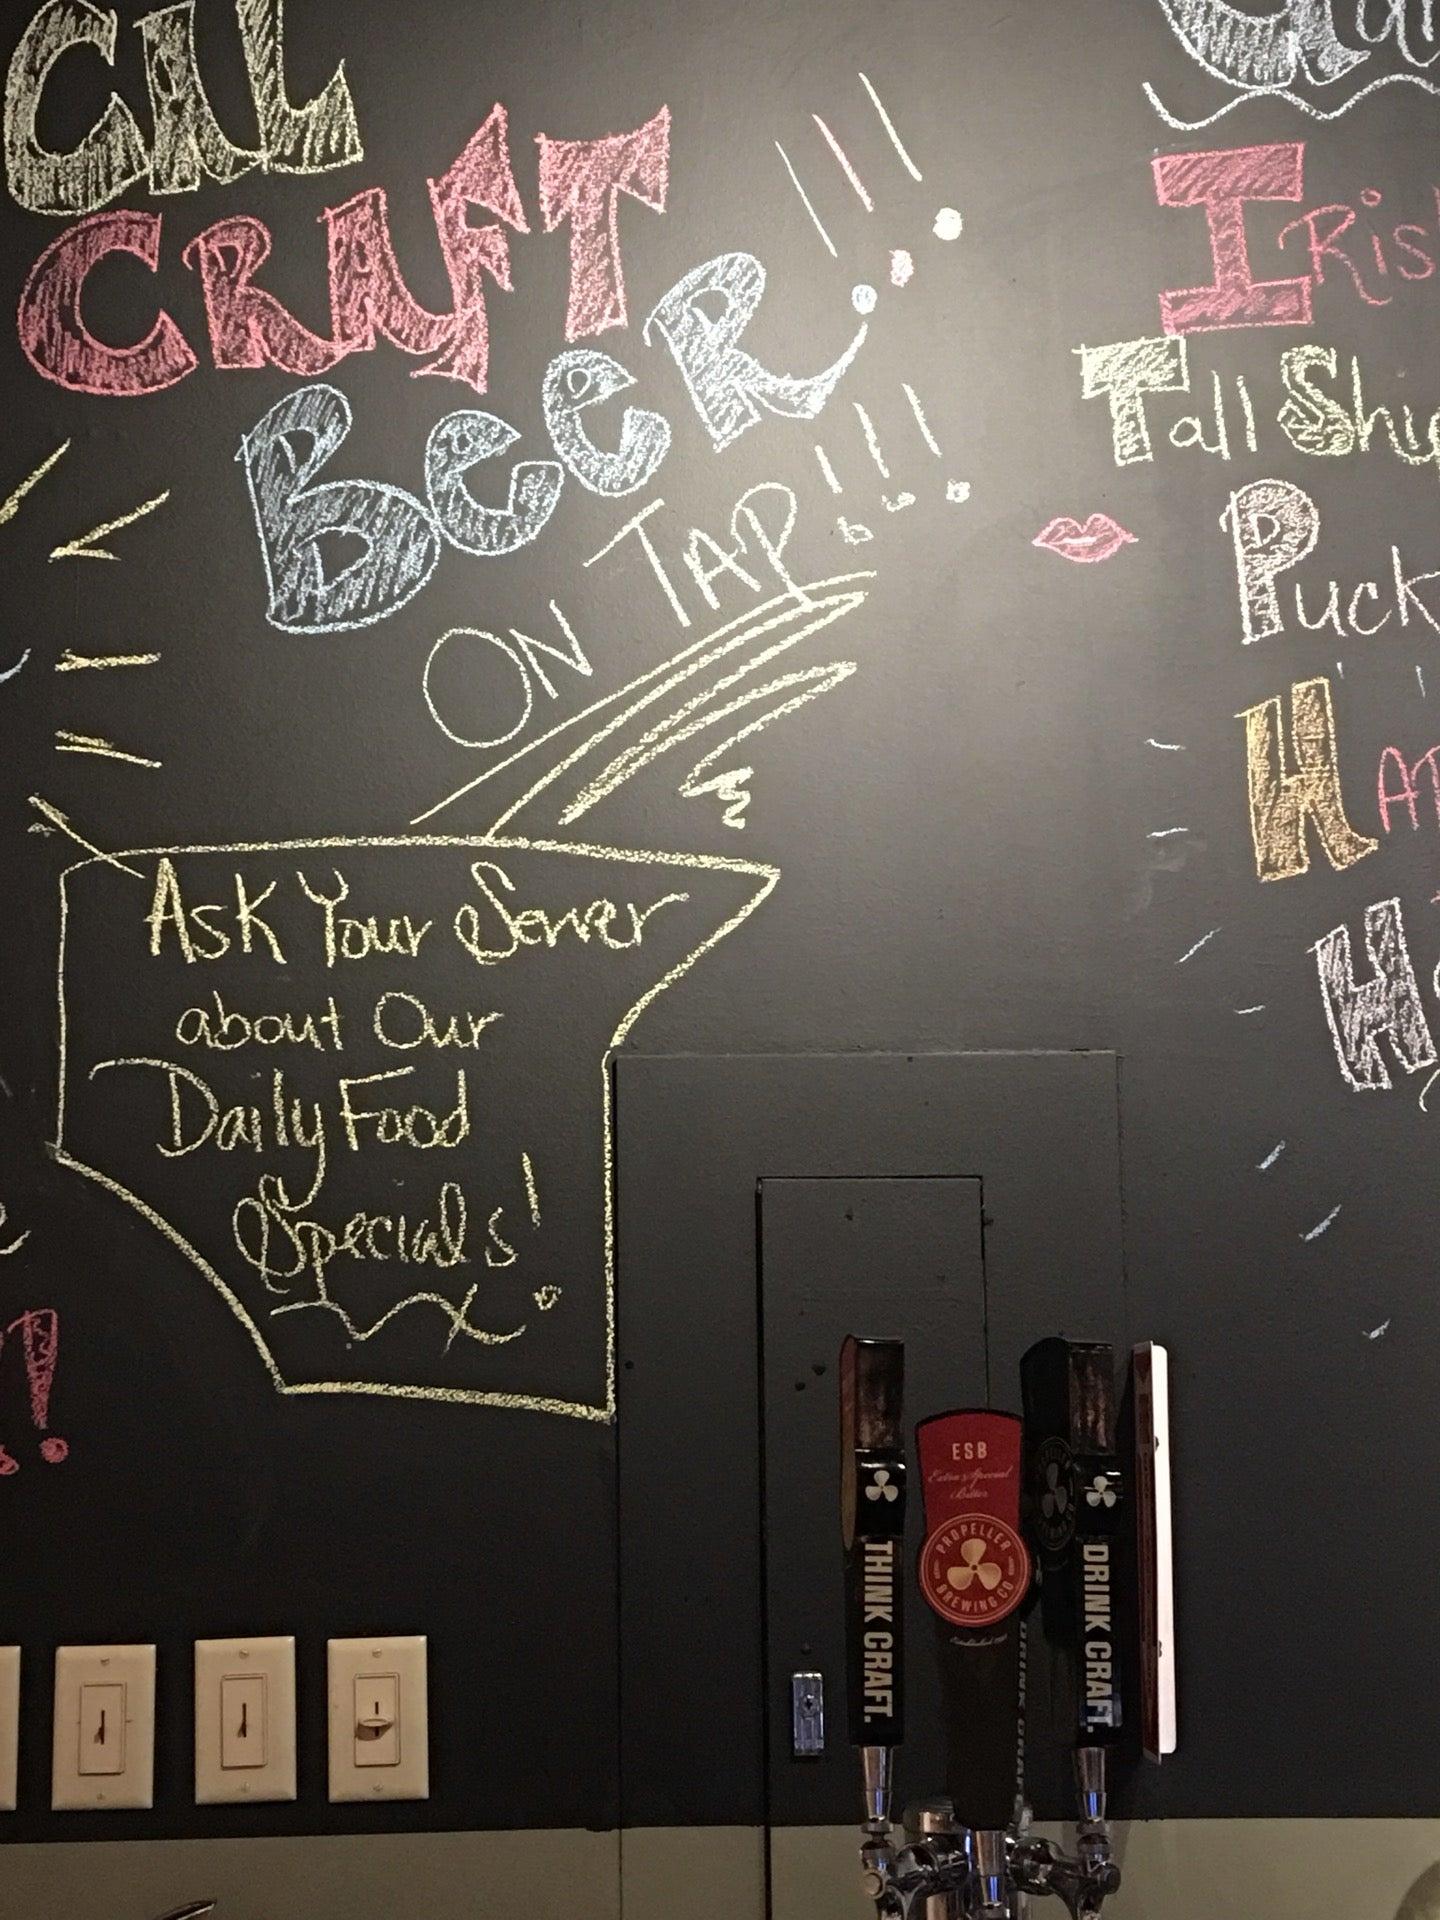 CRAFT
BEER!!!
ON TAP!!!
Ask Your Server
about Our
Daily Food
Specials!
Tall
Puck
ESB
Extra Special
Bitter
PROPELLER
BREWING CO
THINK CRAFT.
DRINK CRAFT.
DRINK CRAFT.